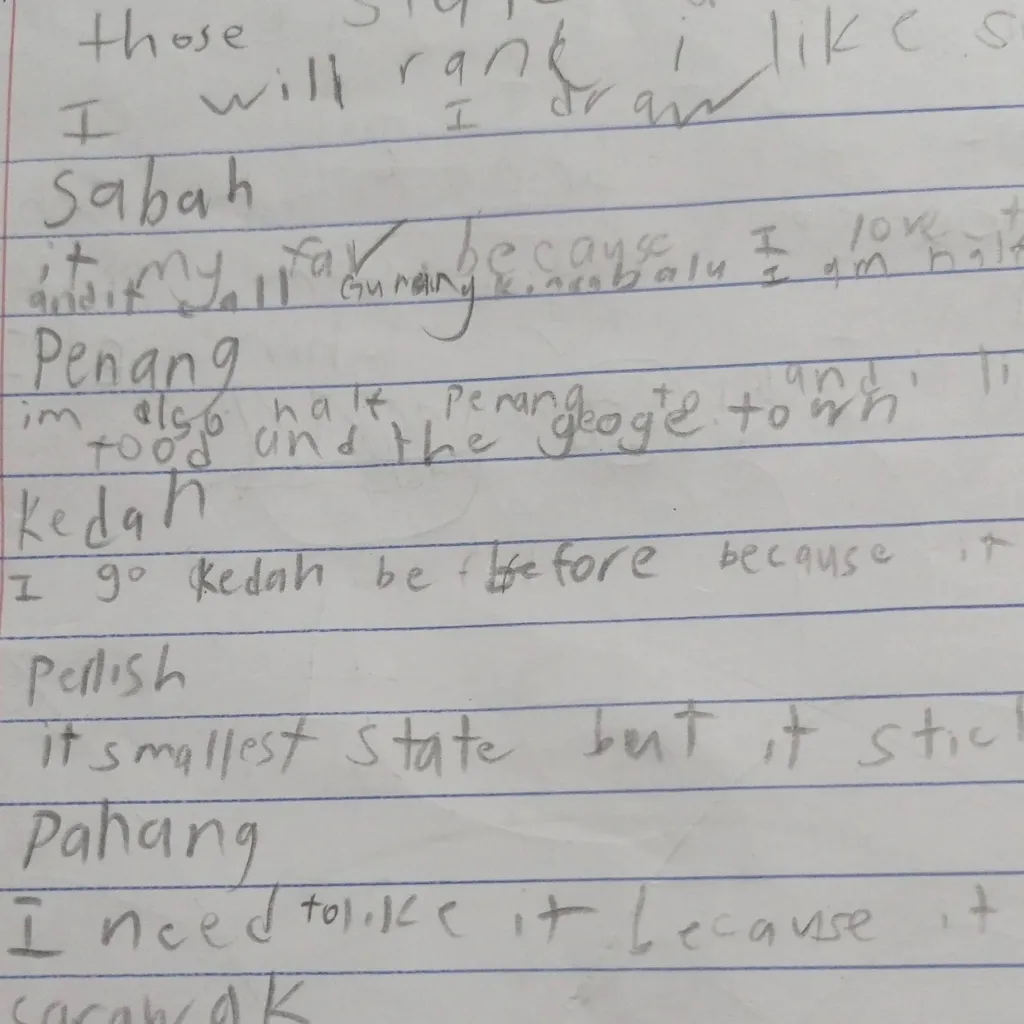 those
I will rank i like
I draw
Sabah
it my fav because I love
and it all Gunung kinabalu I am half
Penang
im also half Penang and i
food and the geoge town
Kedah
I go Kedah be fore because it
Perlish
it smallest state but it
Pahang
I need to like it because it
sarawak